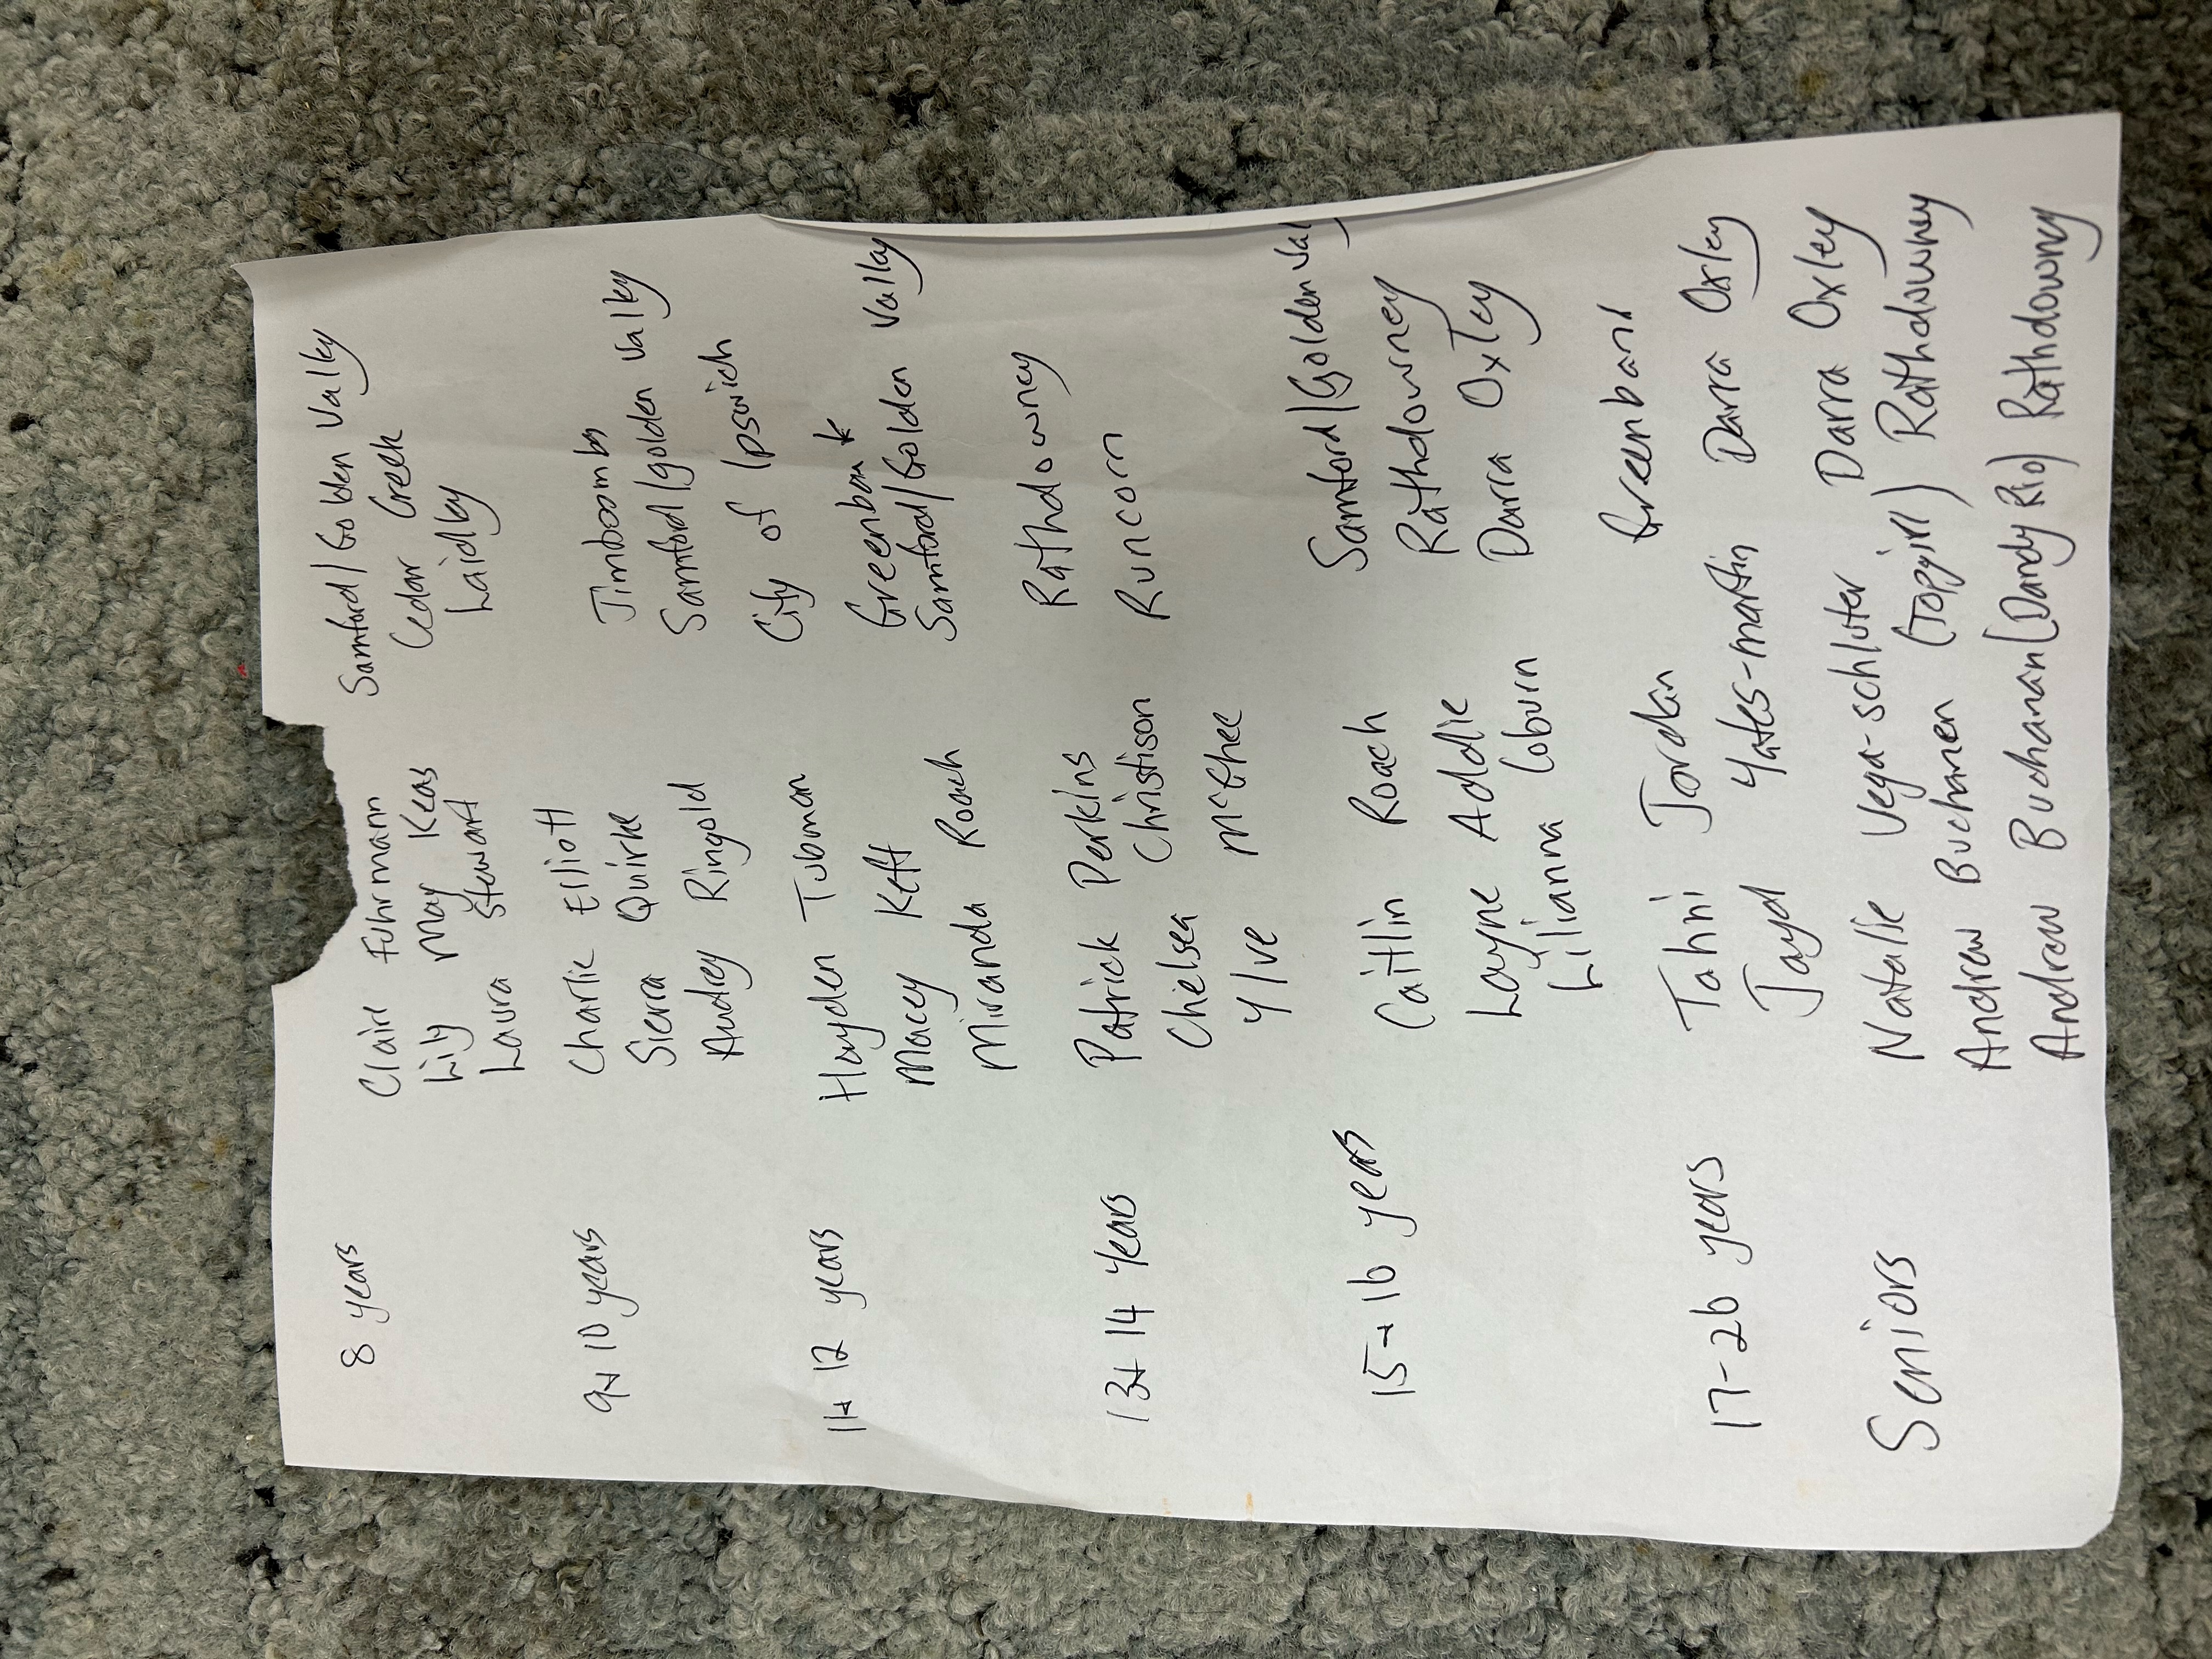 8 years Claire Fuhrmann Samford/Golden Valley
Lily May Keas Cedar Creek
Laura Stewart Laidley
9+10 years Charlie Elliott Jimboomba
Sierra Quirke Samford/golden Valley
Audrey Ringold City of Ipswich
11+12 years Hayden Tubman Greenbank
Macey Keft Samford/Golden Valley
Miranda Roach
13+14 years Patrick Perkins Rathdowney
Chelsea Christison Runcorn
Ylve McGhee
15+16 years Caitlin Roach Samford/Golden Val
Layne Addie Rathdowney
Lilianna Coburn Darra Oxley
17-26 years Tahni Jordan Greenbank
Jayd Yates-Martin Darra Oxley
Seniors Natalie Vega-schluter Darra Oxley
Andrew Buchanen (Topgirl) Rathdowney
Andrew Buchanan (Dandy Rio) Rathdowney